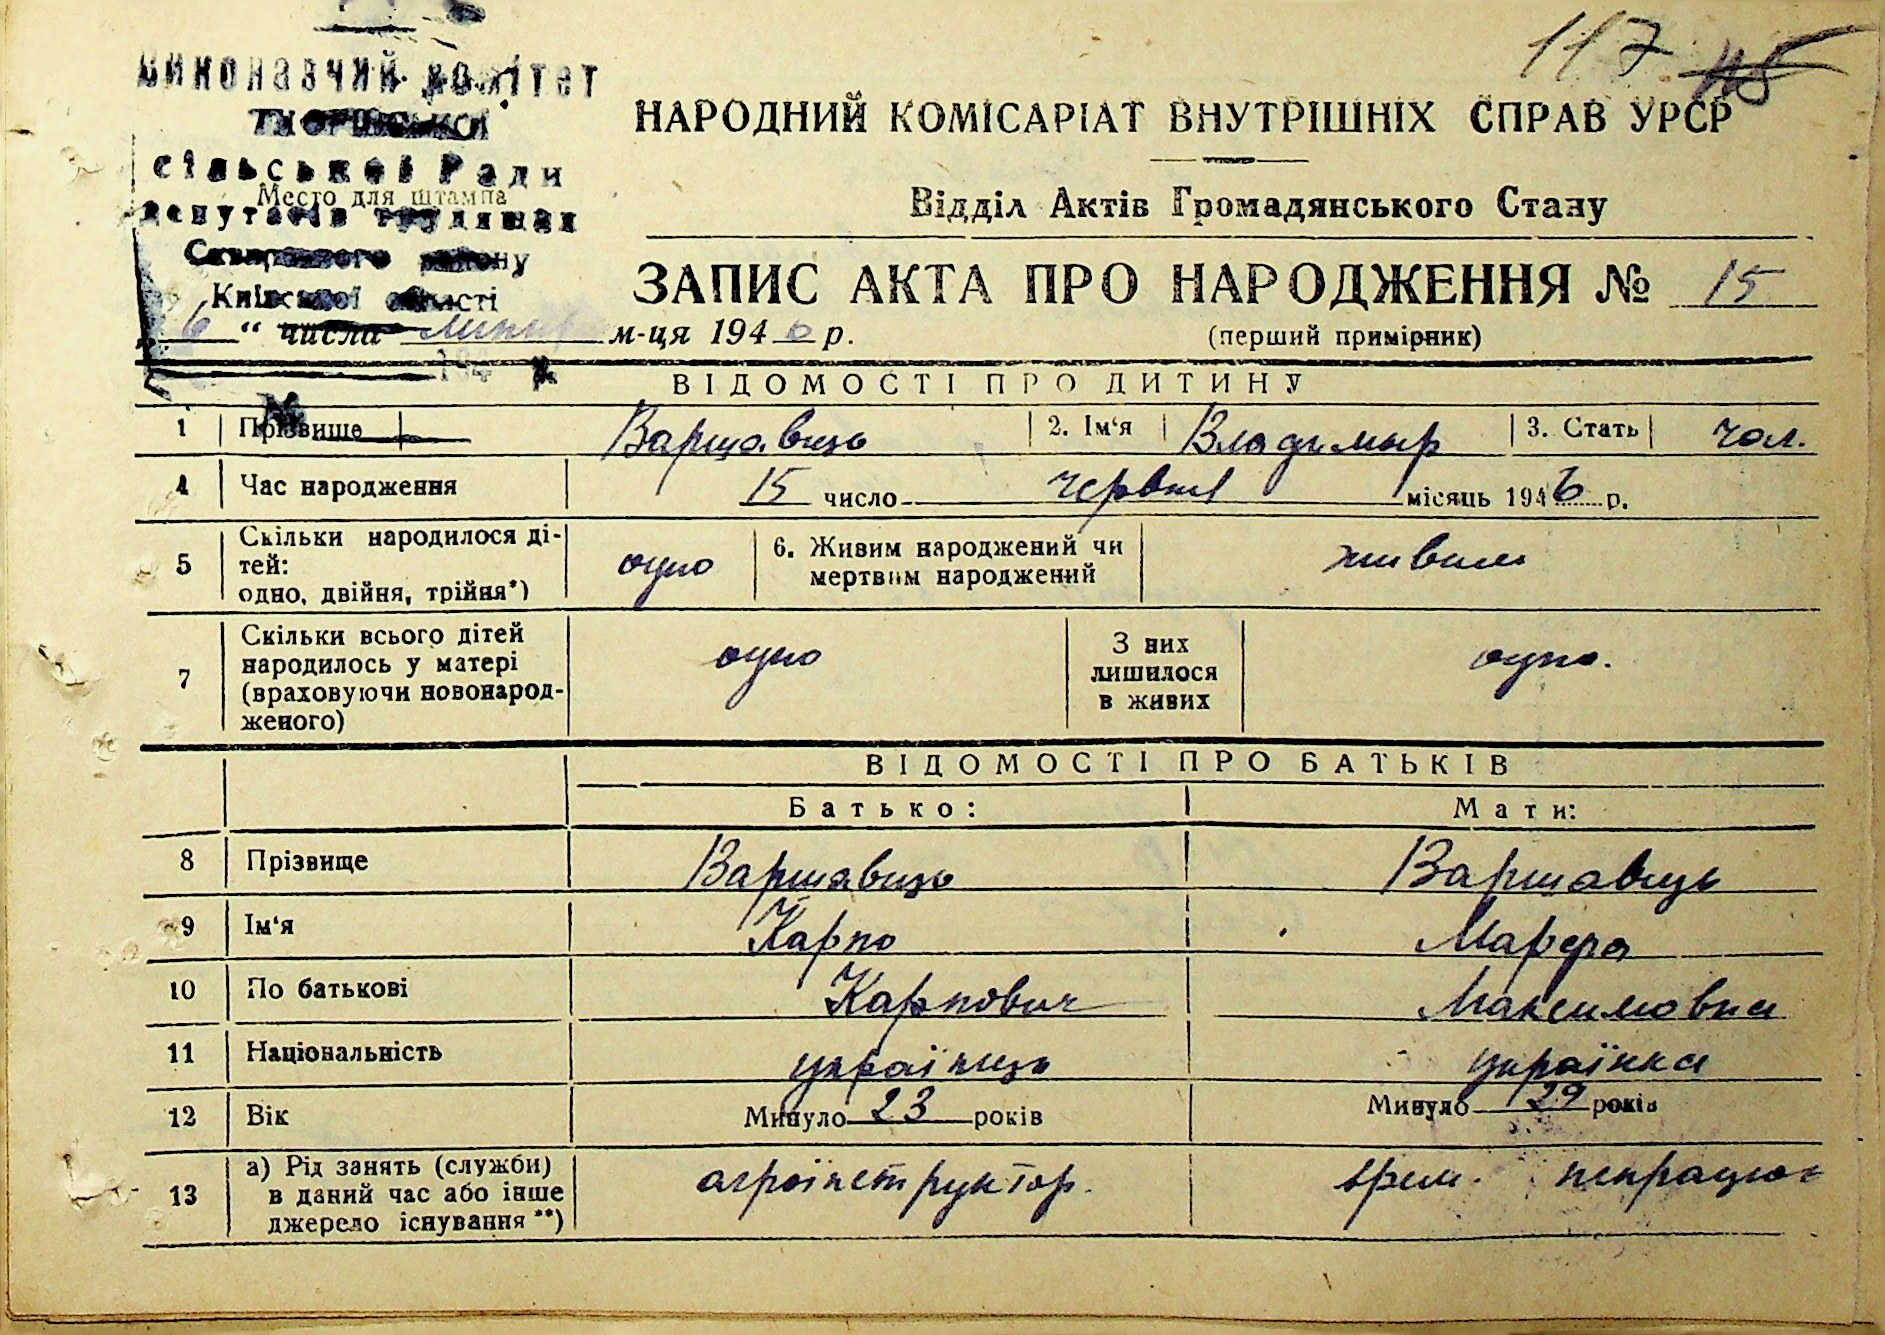 117 115
Виконавчий комітет
сільської Ради
Место для штампа
депутатів трудящих
Сквирського району
Київської області
НАРОДНИЙ КОМІСАРІАТ ВНУТРІШНІХ СПРАВ УРСР
Відділ Актів Громадянського Стану
ЗАПИС АКТА ПРО НАРОДЖЕННЯ № 15
(перший примірник)
„ 6 “ числа липня м-ця 1946 р.
194
ВІДОМОСТІ ПРО ДИТИНУ
1 Прізвище Варшавець 2. Ім‘я Владимыр 3. Стать чол.
4 Час народження 15 число червня місяць 1946 р.
5 Скільки народилося ді-
тей:
одно, двійня, трійня*) одно
6. Живим народжений чи
мертвим народжений живим
7 Скільки всього дітей
народилось у матері
(враховуючи новонарод-
женого) одно
З них
лишилося
в живих одно.
ВІДОМОСТІ ПРО БАТЬКІВ
Батько: Мати:
8 Прізвище Варшавець Варшавець
9 Ім‘я Карпо Марфа
10 По батькові Карпович Максимовна
11 Національність українець українка
12 Вік Минуло 23 років Минуло 29 років
13 а) Рід занять (служби)
в даний час або інше
джерело існування **) агроінструктор. врем. непрацює